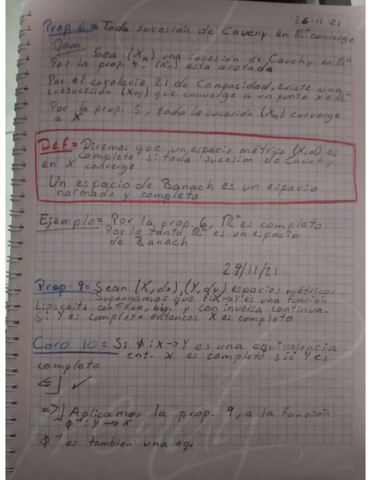 26-11-21
Prop 6 = Toda sucesión de Cauchy en ℝⁿ converge
Dem
Sea (Xₙ) una sucesión de Cauchy en ℝⁿ
Por la prop. 4, (Xₙ) está acotada
Por el corolario 21 de Compacidad, existe una
subsucesión que converge a un punto x ∈ ℝⁿ
Por la prop. 5, toda la sucesión (Xₙ) converge
a X
Def = Diremos que un espacio métrico (X,d) es
completo si toda sucesión de Cauchy
en X converge
Un espacio de Banach es un espacio
normado y completo
Ejemplo = Por la prop. 6, ℝⁿ es completo
Por lo tanto ℝⁿ es un espacio
de Banach
29/11/21
Prop. 9 = Sean (X,dₓ), (Y,dᵧ) espacios métricos.
Supongamos que f: X→Y es una función
Lipschitz continua, biy. y con inversa continua.
Si Y es completo entonces X es completo
Coro 10 = Si ϕ: X→Y es una equivalencia
ent. X es completo sii Y es
completo
⇐] ✓
⇒] Aplicamos la prop. 9, a la función
ϕ⁻¹: Y→X
ϕ⁻¹ es también una eq.